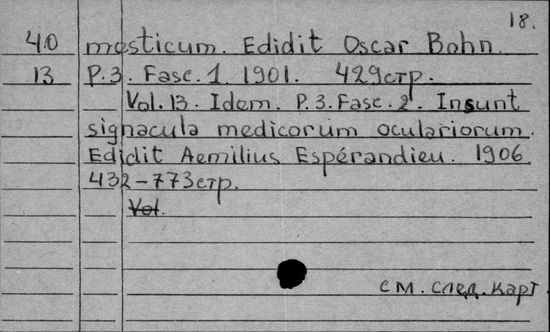 18.
40 mesticum. Edidit Oscar Bohn
13 P.3. Fasc. 1. 1901. 429стр.
Vol. 13. Idem. P.3. Fasc. 2. Insunt
signacula medicorum oculariorum.
Edidit Aemilius Espérandieu. 1906
432-773стр.
Vol.
см. след. карт.